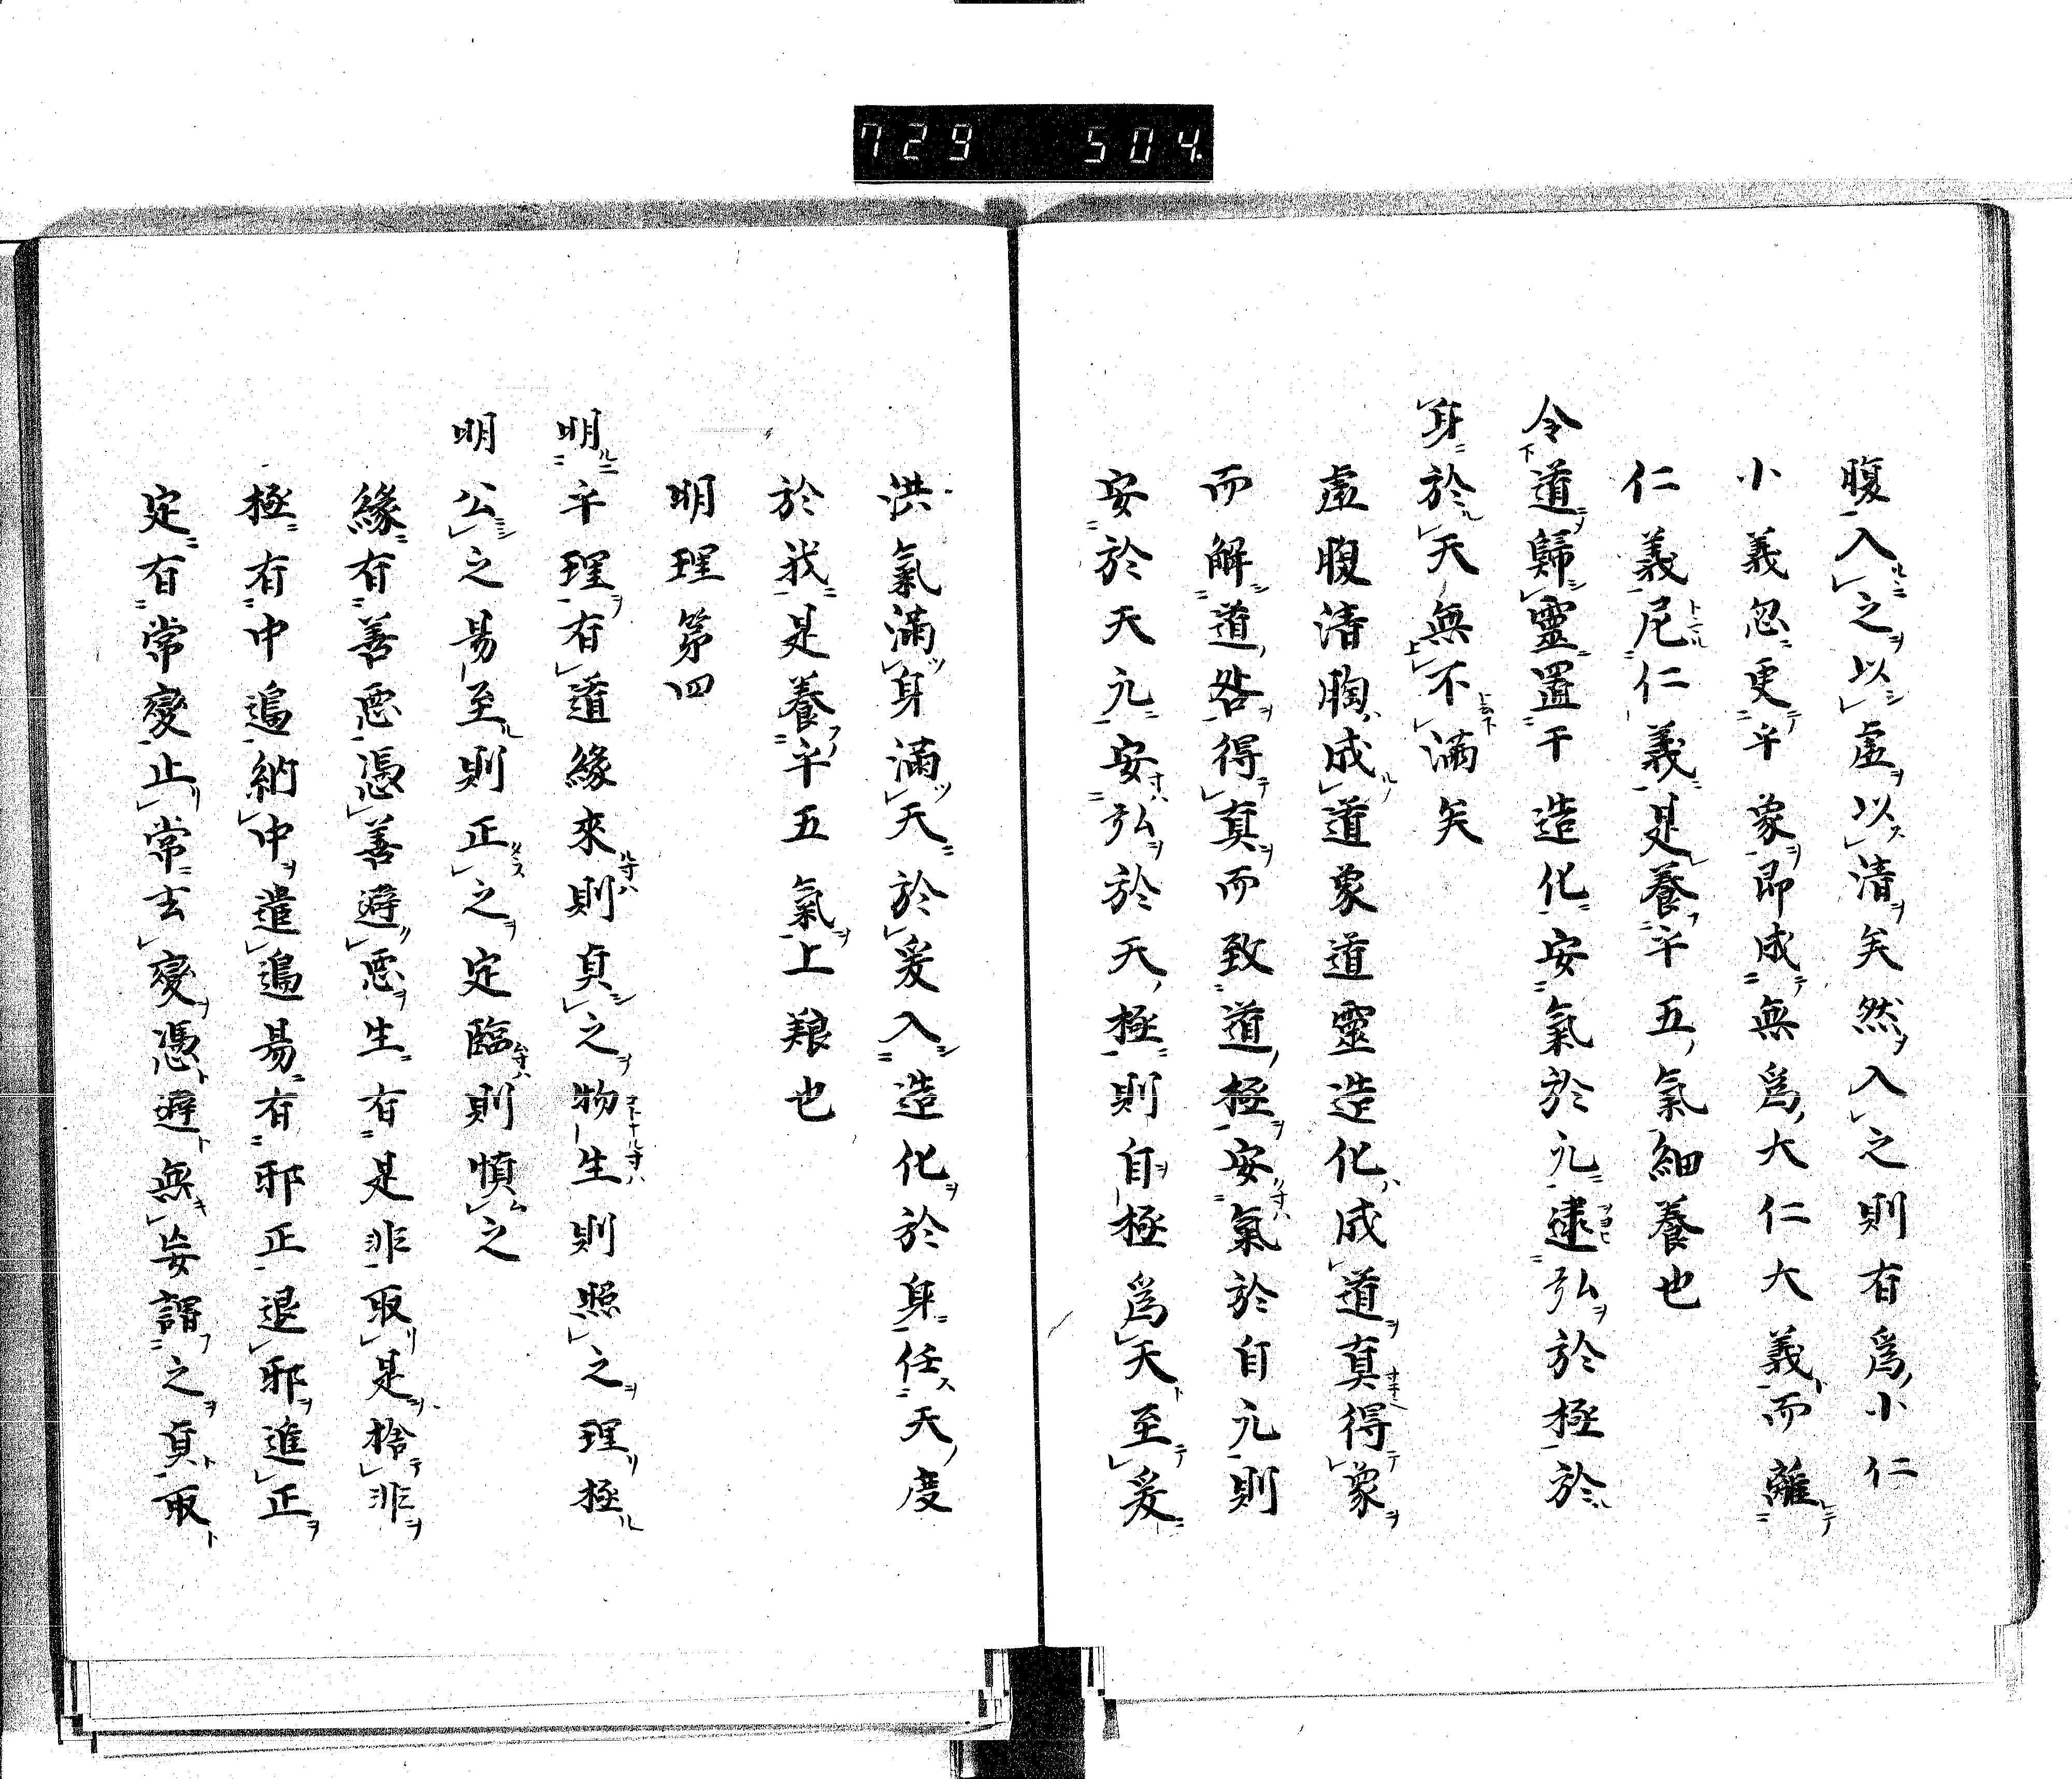 729 504
腹入之以虚以清矣然入之則有爲小仁
小義忽更乎象即成無爲大仁大義而離
仁義尼仁義是養乎五氣細養也
令道歸靈置于造化安氣於元逮弘於極於
身於天無不滿矣
虚腹清胸成道象道靈造化成道真得象
而解道咎得真而致道極安氣於自元則
安於天元安弘於天極則自極爲天至爰
洪氣滿身滿天於爰入造化於身任天度
於我是養乎五氣上粮也
明理第四
明乎理有道緣來則貞之物生則照之理極
明公之易至則正之定臨則慎之
緣有善惡憑善避惡生有是非取是捨非
極有中遍納中遣遍易有邪正退邪進正
定有常變止常去變憑避無妄謂之貞取